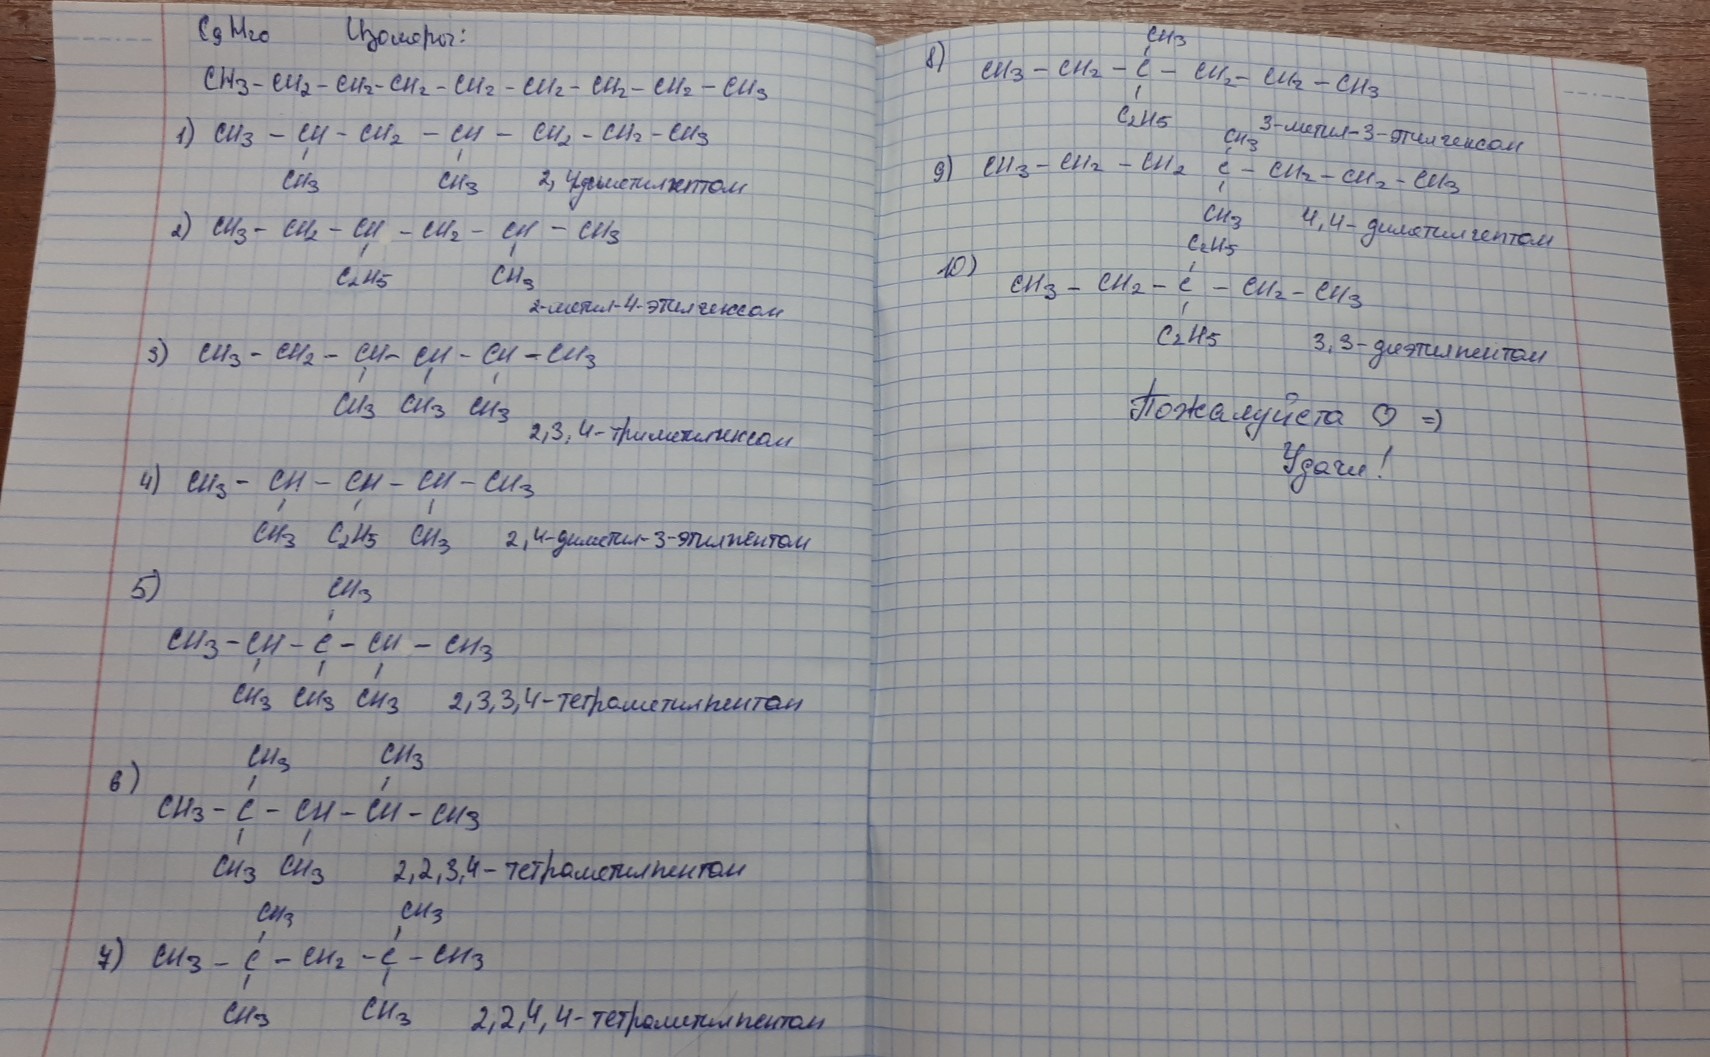 C9H20 Изомеры:
CH3-CH2-CH2-CH2-CH2-CH2-CH2-CH2-CH3
1) CH3-CH-CH2-CH-CH2-CH2-CH3
CH3 CH3 2,4диметилгептан
2) CH3-CH2-CH-CH2-CH-CH3
C2H5 CH3
2-метил-4-этилгексан
3) CH3-CH2-CH-CH-CH-CH3
CH3 CH3 CH3
2,3,4-триметилгексан
4) CH3-CH-CH-CH-CH3
CH3 C2H5 CH3 2,4-диметил-3-этилпентан
5) CH3
CH3-CH-C-CH-CH3
CH3 CH3 CH3 2,3,3,4-тетраметилпентан
CH3 CH3
6) CH3-C-CH-CH-CH3
CH3 CH3 2,2,3,4-тетраметилпентан
CH3 CH3
7) CH3-C-CH2-C-CH3
CH3 CH3 2,2,4,4-тетраметилпентан
CH3
8) CH3-CH2-C-CH2-CH2-CH3
C2H5
3-метил-3-этилгексан
CH3
9) CH3-CH2-CH2 C-CH2-CH2-CH3
CH3 4,4-диметилгептан
C2H5
10) CH3-CH2-C-CH2-CH3
C2H5 3,3-диэтилпентан
Пожалуйста ♡ =)
Удачи!